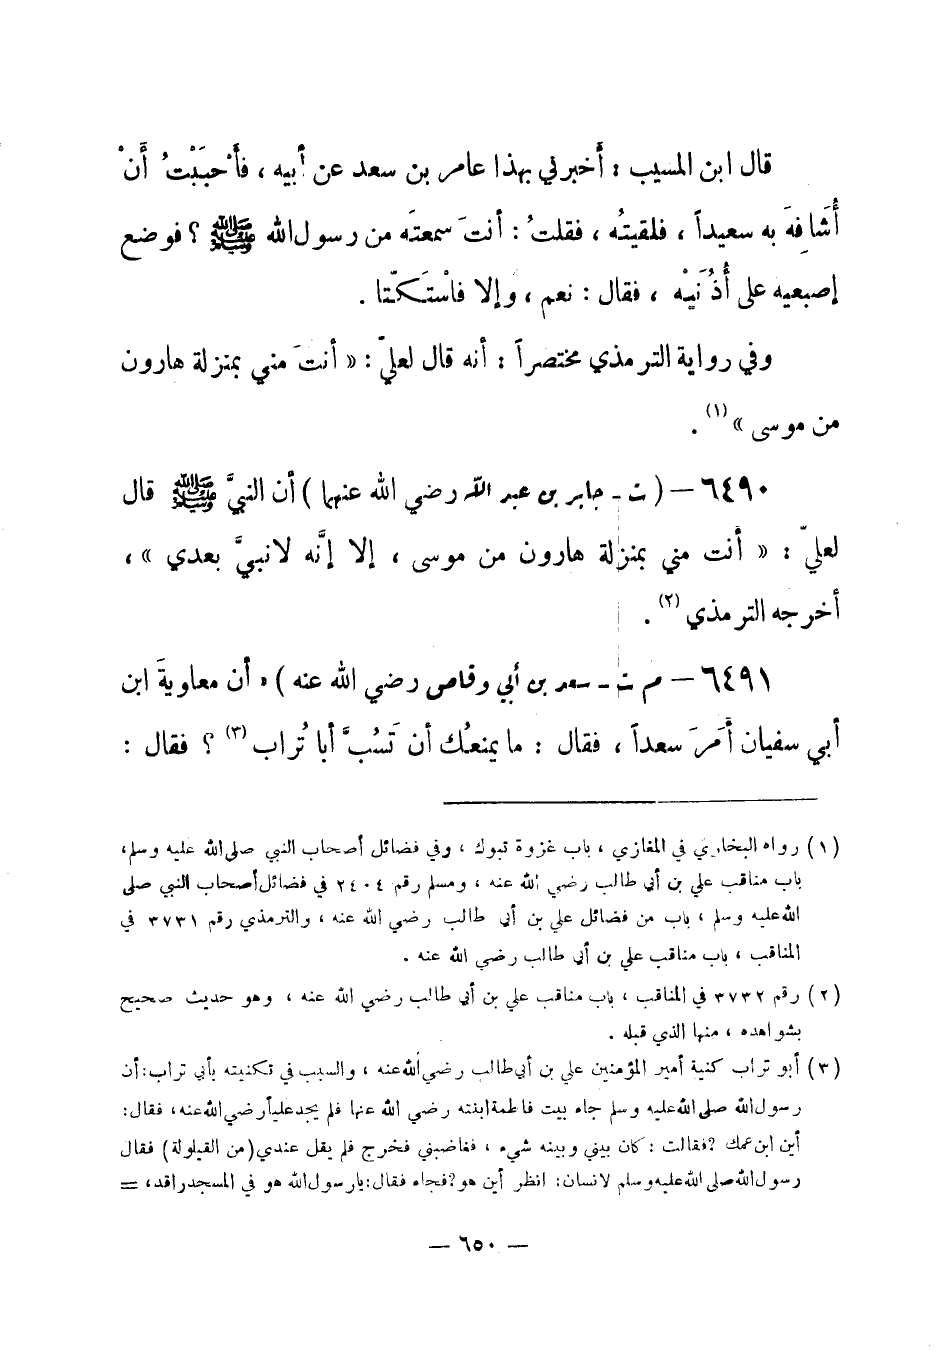 قال ابن المسيب : أخبرني بهذا عامر بن سعد عن أبيه ، فأَحبَبْتُ أَنْ
أُشافِهَ به سعيداً ، فلقيتُه ، فقلتُ : أنتَ سمعتَه من رسول الله ﷺ ؟ فوضع
إصبعيه على أُذُنَيْه ، فقال : نعم ، وإلا فاسْتَكَّتا .
وفي رواية الترمذي مختصراً : أنه قال لعليّ : « أنتَ مني بمنزلة هارون
من موسى » (١) .
٦٤٩٠ – ( ت - جابر بن عبد الله رضي الله عنهما ) أن النبيَّ ﷺ قال
لعليّ : « أنت مني بمنزلة هارون من موسى ، إلا إنَّه لا نبيَّ بعدي » ،
أخرجه الترمذي (٢) .
٦٤٩١ – م ت - سعد بن أبي وقاص رضي الله عنه ) « أن معاويةَ ابن
أبي سفيان أَمَرَ سعداً ، فقال : ما يمنعُك أن تَسُبَّ أبا تُراب (٣) ؟ فقال :
(١) رواه البخاري في المغازي ، باب غزوة تبوك ، وفي فضائل أصحاب النبي صلى الله عليه وسلم،
باب مناقب علي بن أبي طالب رضي الله عنه ، ومسلم رقم ٢٤٠٤ في فضائل أصحاب النبي صلى
الله عليه وسلم ، باب من فضائل علي بن أبي طالب رضي الله عنه ، والترمذي رقم ٣٧٣١ في
المناقب ، باب مناقب علي بن أبي طالب رضي الله عنه .
(٢) رقم ٣٧٣٢ في المناقب ، باب مناقب علي بن أبي طالب رضي الله عنه ، وهو حديث صحيح
بشواهده ، منها الذي قبله .
(٣) أبو تراب كنية أمير المؤمنين علي بن أبي طالب رضي الله عنه ، والسبب في تكنيته بأبي تراب: أن
رسول الله صلى الله عليه وسلم جاء بيت فاطمة ابنته رضي الله عنها فلم يجد علياً رضي الله عنه، فقال:
أين ابن عمك ؟ فقالت : كان بيني وبينه شيء ، فغاضبني فخرج فلم يقل عندي (من القيلولة) فقال
رسول الله صلى الله عليه وسلم لانسان: انظر أين هو؟ فجاء فقال: يا رسول الله هو في المسجد راقد، =
– ٦٥٠ –